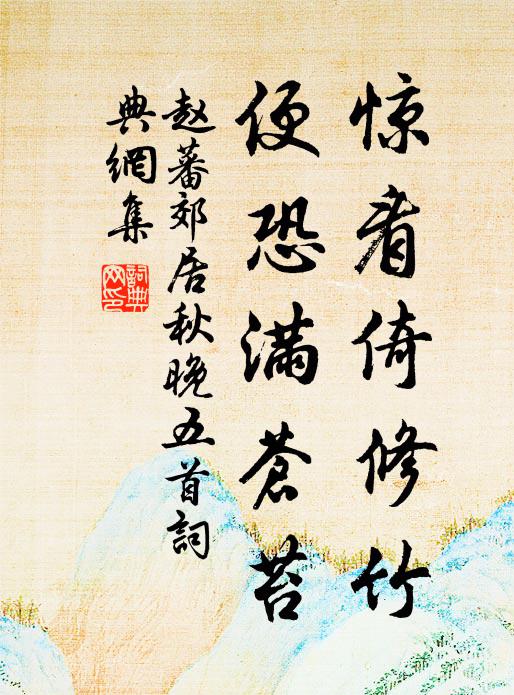 惊看倚修竹
便恐满苍苔
赵蕃郊居秋晚五首词
典網集
詞典網印